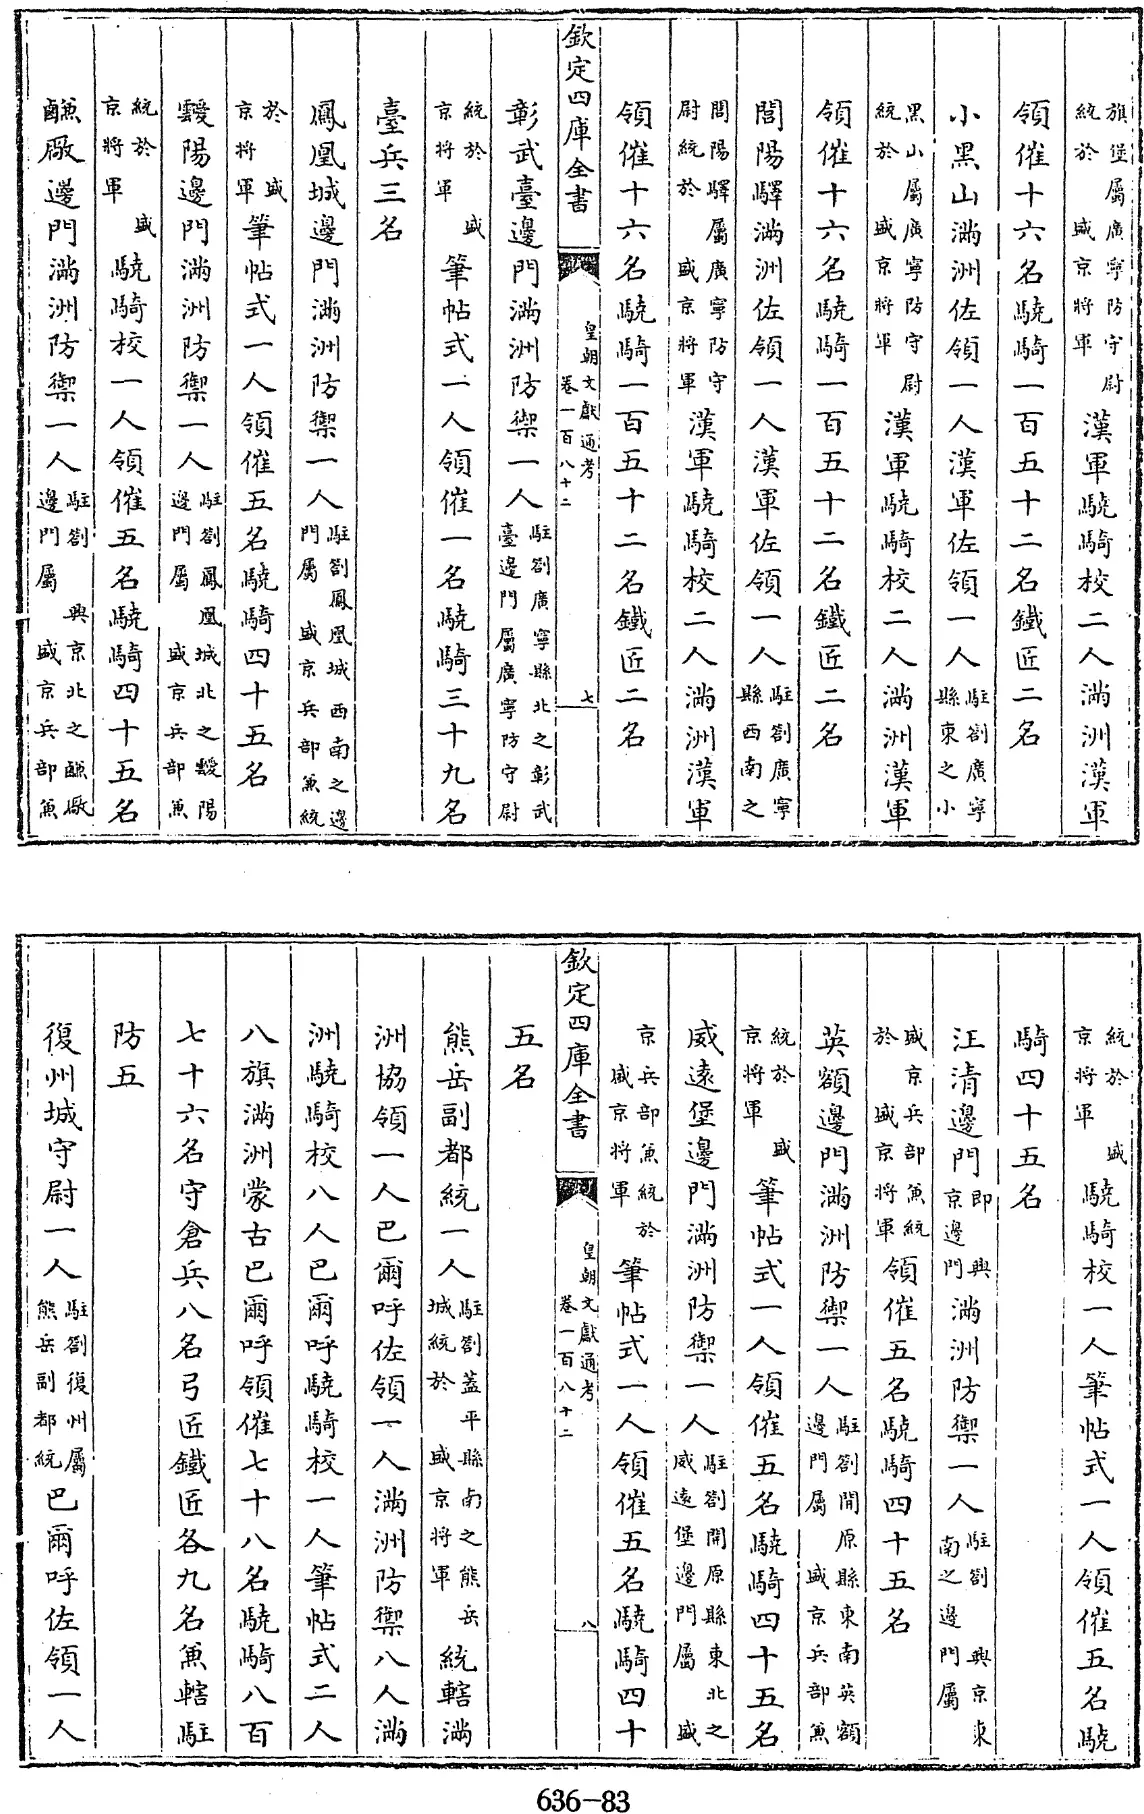 旗堡屬廣寧防守尉統於盛京將軍漢軍驍騎校二人滿洲漢軍
領催十六名驍騎一百五十二名鐵匠二名
小黑山滿洲佐領一人漢軍佐領一人駐劄廣寧縣東之小
黑山屬廣寧防守尉統於盛京將軍漢軍驍騎校二人滿洲漢軍
領催十六名驍騎一百五十二名鐵匠二名
閭陽驛滿洲佐領一人漢軍佐領一人駐劄廣寧縣西南之
閭陽驛屬廣寧防守尉統於盛京將軍漢軍驍騎校二人滿洲漢軍
領催十六名驍騎一百五十二名鐵匠二名
欽定四庫全書
皇朝文獻通考
卷一百八十二
七
彰武臺邊門滿洲防禦一人駐劄廣寧縣北之彰武臺邊門屬廣寧防守尉
統於盛京將軍筆帖式一人領催一名驍騎三十九名
臺兵三名
鳳凰城邊門滿洲防禦一人駐劄鳳凰城西南之邊門屬盛京兵部兼統
於盛京將軍筆帖式一人領催五名驍騎四十五名
靉陽邊門滿洲防禦一人駐劄鳳凰城北之靉陽邊門屬盛京兵部兼
統於盛京將軍驍騎校一人領催五名驍騎四十五名
鹻廠邊門滿洲防禦一人駐劄興京北之鹻廠邊門屬盛京兵部兼
統於盛京將軍驍騎校一人筆帖式一人領催五名驍
騎四十五名
汪清邊門即興京邊門滿洲防禦一人駐劄興京東南之邊門屬
盛京兵部兼統於盛京將軍領催五名驍騎四十五名
英額邊門滿洲防禦一人駐劄開原縣東南英額邊門屬盛京兵部兼
統於盛京將軍筆帖式一人領催五名驍騎四十五名
威遠堡邊門滿洲防禦一人駐劄開原縣東北之威遠堡邊門屬盛
京兵部兼統於盛京將軍筆帖式一人領催五名驍騎四十
五名
欽定四庫全書
皇朝文獻通考
卷一百八十二
八
熊岳副都統一人駐劄蓋平縣南之熊岳城統於盛京將軍統轄滿
洲協領一人巴爾呼佐領一人滿洲防禦八人滿
洲驍騎校八人巴爾呼驍騎校一人筆帖式二人
八旗滿洲蒙古巴爾呼領催七十八名驍騎八百
七十六名守倉兵八名弓匠鐵匠各九名兼轄駐
防五
復州城守尉一人駐劄復州屬熊岳副都統巴爾呼佐領一人
636-83